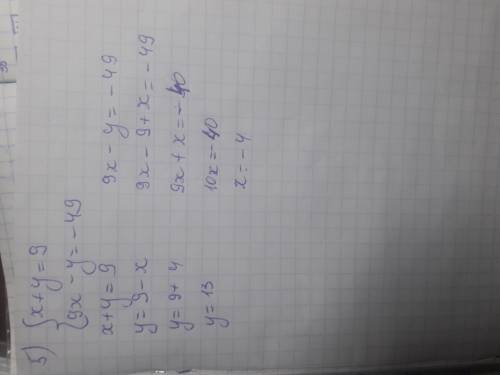 5) { x + y = 9
{ 9x - y = -49
x + y = 9
y = 9 - x
y = 9 + 4
y = 13
9x - y = -49
9x - 9 + x = -49
9x + x = -40
10x = -40
x = -4